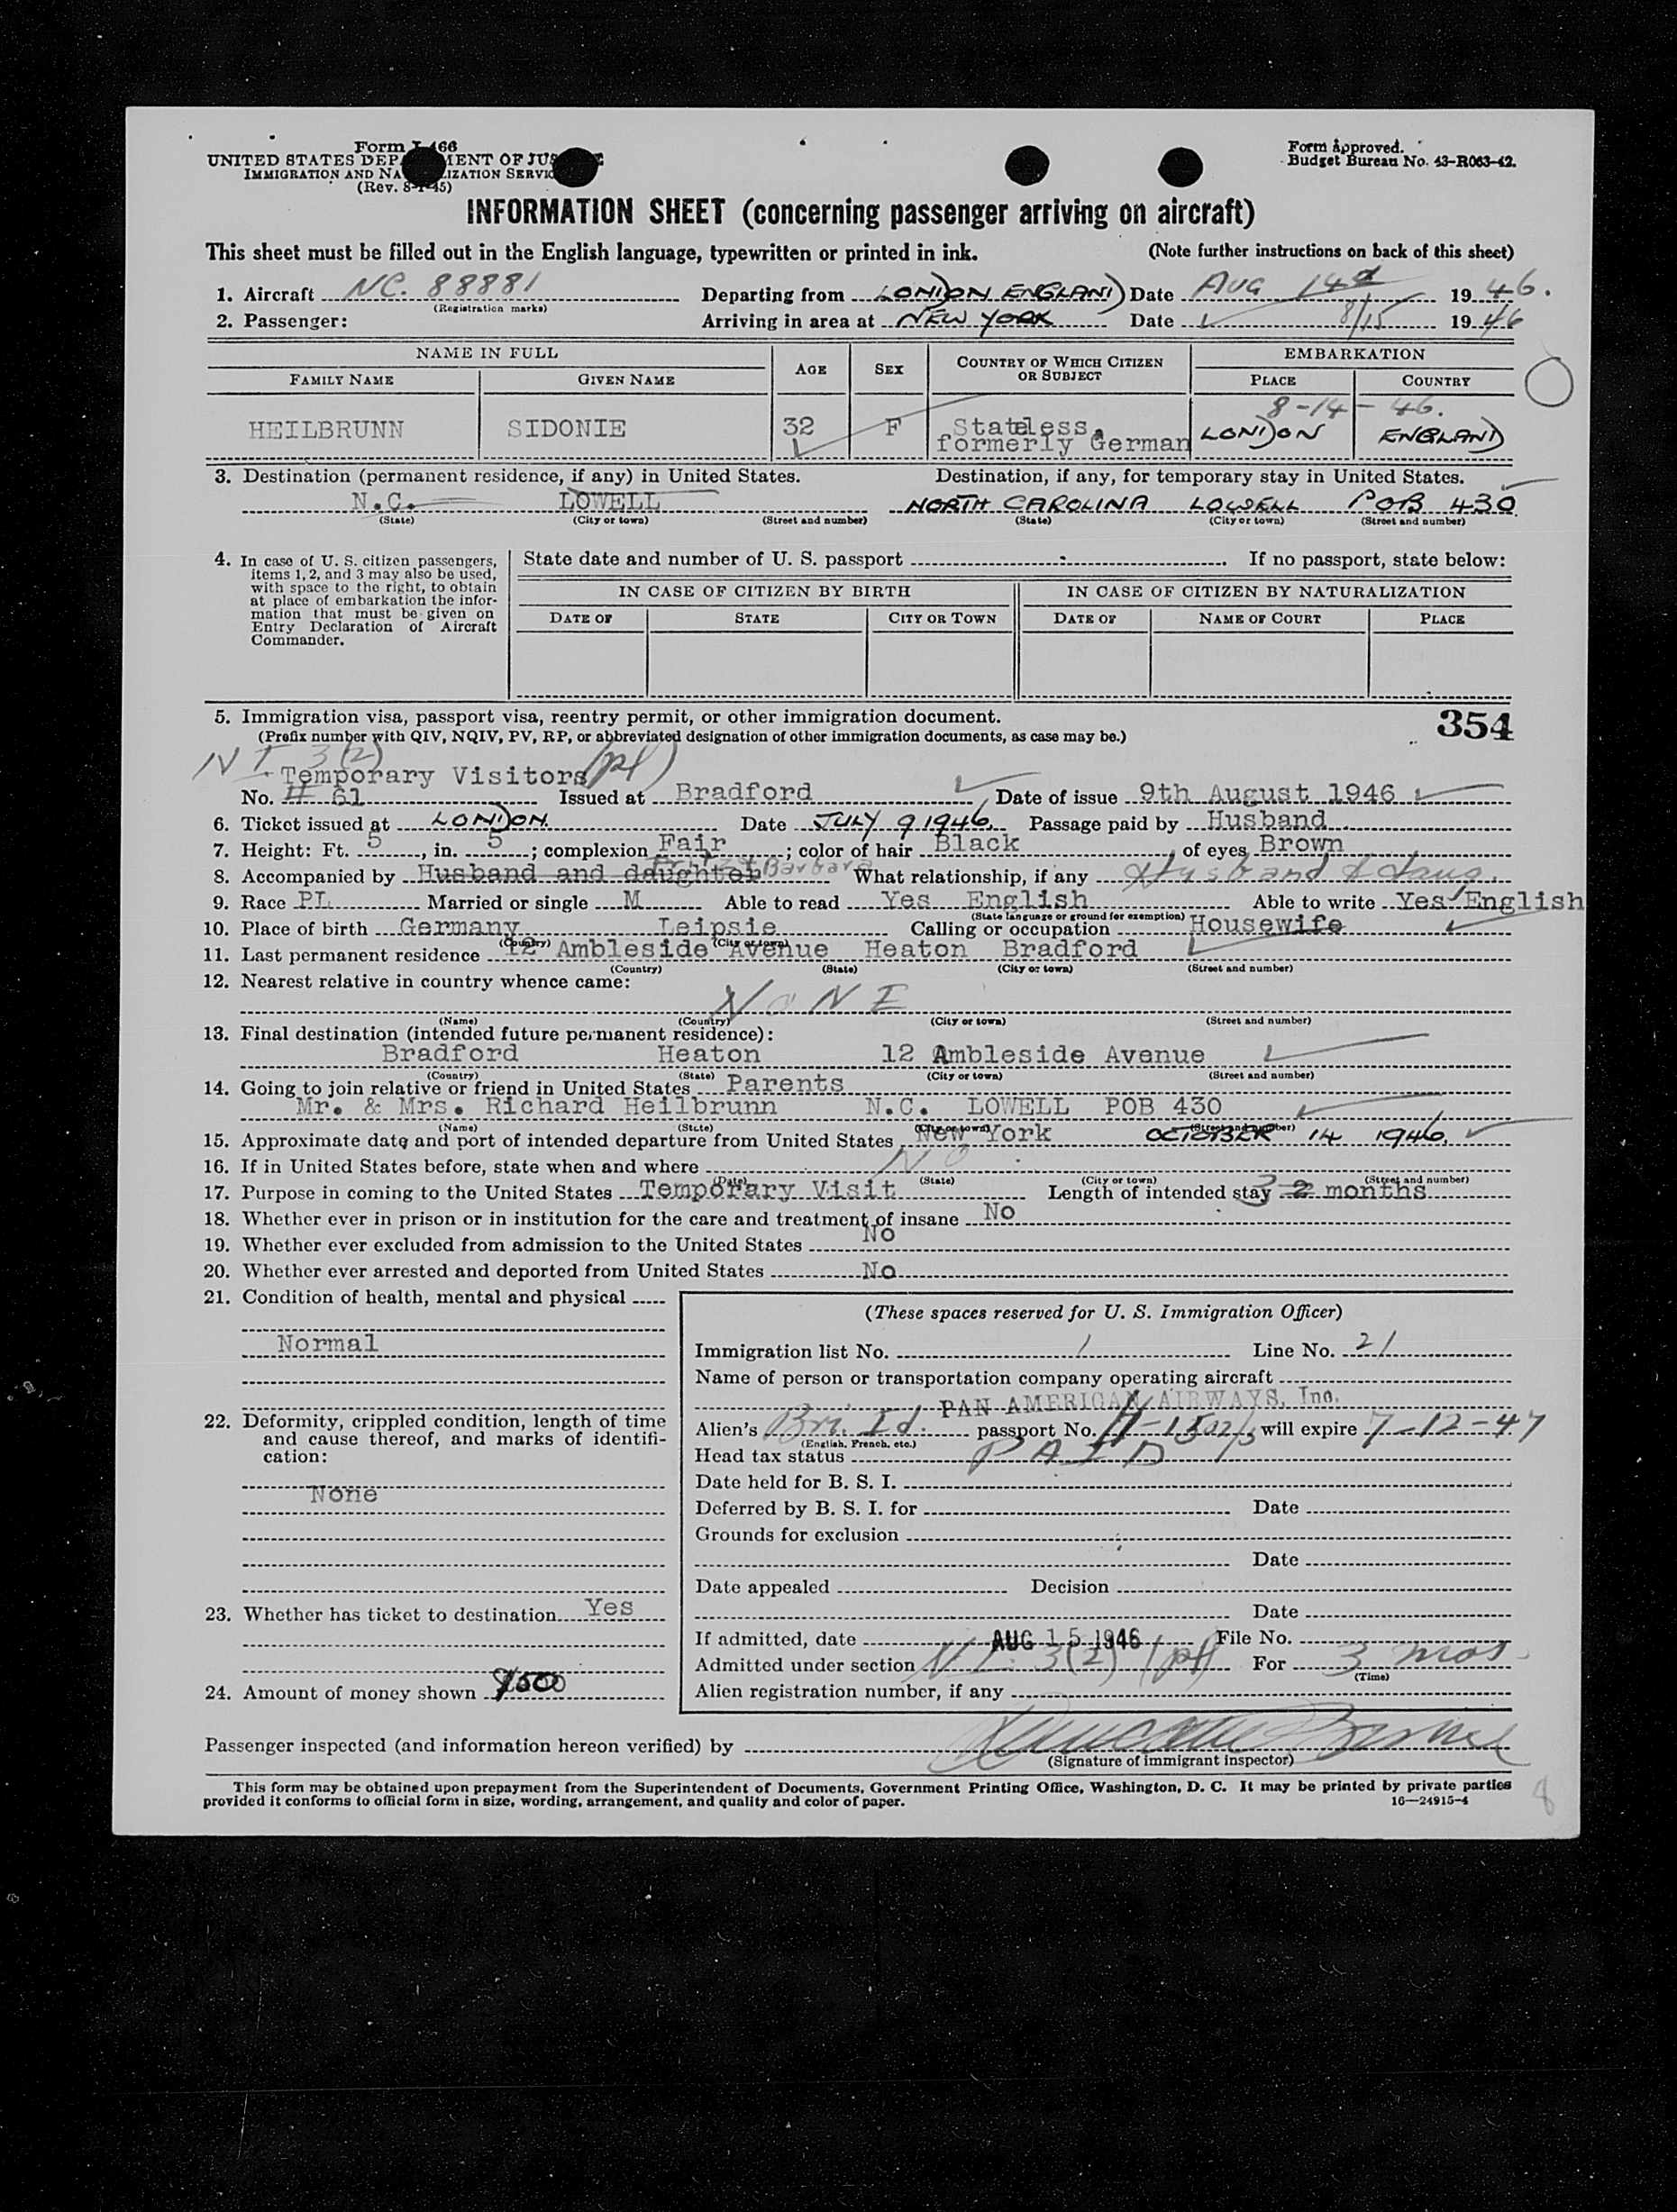 Form I-466
UNITED STATES DEPARTMENT OF JUSTICE
IMMIGRATION AND NATURALIZATION SERVICE
(Rev. 8-1-45)
Form approved.
Budget Bureau No. 43-R063-42.
INFORMATION SHEET (concerning passenger arriving on aircraft)
This sheet must be filled out in the English language, typewritten or printed in ink. (Note further instructions on back of this sheet)
1. Aircraft NC. 88881 Departing from LONDON ENGLAND Date AUG 14 1946.
(Registration marks)
2. Passenger: Arriving in area at NEW YORK Date 8/15 1946
NAME IN FULL AGE SEX COUNTRY OF WHICH CITIZEN OR SUBJECT EMBARKATION
FAMILY NAME GIVEN NAME PLACE COUNTRY
8-14-46.
HEILBRUNN SIDONIE 32 F Stateless, formerly German LONDON ENGLAND
3. Destination (permanent residence, if any) in United States. Destination, if any, for temporary stay in United States.
N.C. LOWELL NORTH CAROLINA LOWELL POB 430
(State) (City or town) (Street and number) (State) (City or town) (Street and number)
4. In case of U. S. citizen passengers, items 1, 2, and 3 may also be used, with space to the right, to obtain at place of embarkation the information that must be given on Entry Declaration of Aircraft Commander.
State date and number of U. S. passport If no passport, state below:
IN CASE OF CITIZEN BY BIRTH IN CASE OF CITIZEN BY NATURALIZATION
DATE OF STATE CITY OR TOWN DATE OF NAME OF COURT PLACE
5. Immigration visa, passport visa, reentry permit, or other immigration document. 354
(Prefix number with QIV, NQIV, PV, RP, or abbreviated designation of other immigration documents, as case may be.)
NI 3(2)
Temporary Visitors
No. # 61 Issued at Bradford Date of issue 9th August 1946
6. Ticket issued at LONDON. Date JULY 9 1946. Passage paid by Husband
7. Height: Ft. 5, in. 5; complexion Fair; color of hair Black, of eyes Brown
8. Accompanied by Husband and daughter Barbara What relationship, if any Husband & daug.
9. Race PL Married or single M Able to read Yes English Able to write Yes English
(State language or ground for exemption)
10. Place of birth Germany Leipsie Calling or occupation Housewife
(Country) (City or town)
11. Last permanent residence 12 Ambleside Avenue Heaton Bradford
(Country) (State) (City or town) (Street and number)
12. Nearest relative in country whence came:
NONE
(Name) (Country) (City or town) (Street and number)
13. Final destination (intended future permanent residence):
Bradford Heaton 12 Ambleside Avenue
(Country) (State) (City or town) (Street and number)
14. Going to join relative or friend in United States Parents
Mr. & Mrs. Richard Heilbrunn N.C. LOWELL POB 430
(Name) (State) (City or town) (Street and number)
15. Approximate date and port of intended departure from United States New York OCTOBER 14 1946.
16. If in United States before, state when and where No
(Date) (State) (City or town) (Street and number)
17. Purpose in coming to the United States Temporary Visit Length of intended stay 3 2 months
18. Whether ever in prison or in institution for the care and treatment of insane No
19. Whether ever excluded from admission to the United States No
20. Whether ever arrested and deported from United States No
21. Condition of health, mental and physical
Normal
22. Deformity, crippled condition, length of time and cause thereof, and marks of identification:
None
23. Whether has ticket to destination Yes
24. Amount of money shown
(These spaces reserved for U. S. Immigration Officer)
Immigration list No. 1 Line No. 21
Name of person or transportation company operating aircraft
PAN AMERICAN AIRWAYS, Inc.
Alien's Bri. Id. passport No. will expire 7-12-47
(English, French, etc.)
Head tax status PAID
Date held for B. S. I.
Deferred by B. S. I. for Date
Grounds for exclusion
Date
Date appealed Decision
Date
If admitted, date AUG 15 1946 File No.
Admitted under section NI. 3(2) For 3 mos.
(Time)
Alien registration number, if any
Passenger inspected (and information hereon verified) by
(Signature of immigrant inspector)
This form may be obtained upon prepayment from the Superintendent of Documents, Government Printing Office, Washington, D. C. It may be printed by private parties
provided it conforms to official form in size, wording, arrangement, and quality and color of paper. 16—24915-4
8